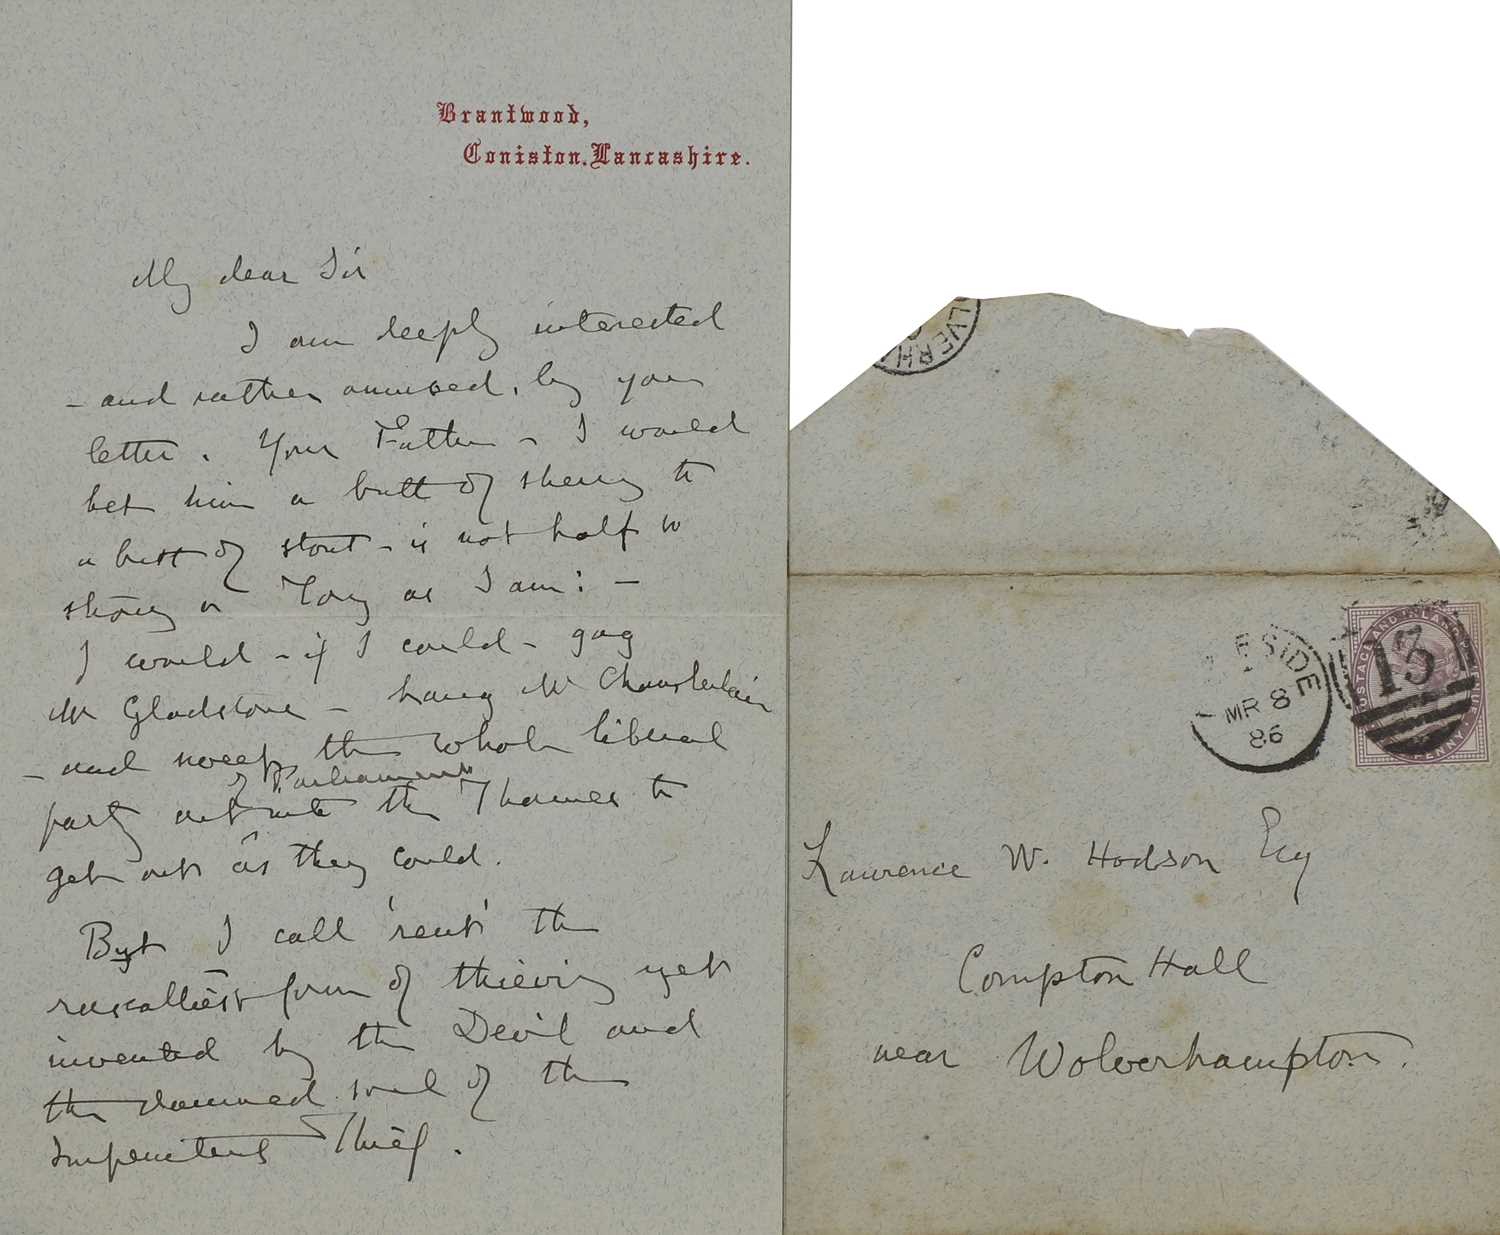 Brantwood,
Coniston. Lancashire.
My dear Sir
I am deeply interested
- and rather amused, by your
letter. Your Father - I would
bet him a butt of sherry to
a butt of stout - is not half so
strong a Tory as I am: -
I would - if I could - gag
Mr Gladstone - hang Mr Chamberlain
- and sweep the whole liberal
of Parliament
party out into the Thames to
get out as they could.
But I call 'rent' the
rascalliest form of thieving yet
invented by the Devil and
the damned soul of the
Impenitent Thief.
LVERH
ESIDE
MR 8
86
POSTAGE AND INLAND
13
PENNY
Lawrence W. Hodson Esq
Compton Hall
near Wolverhampton.